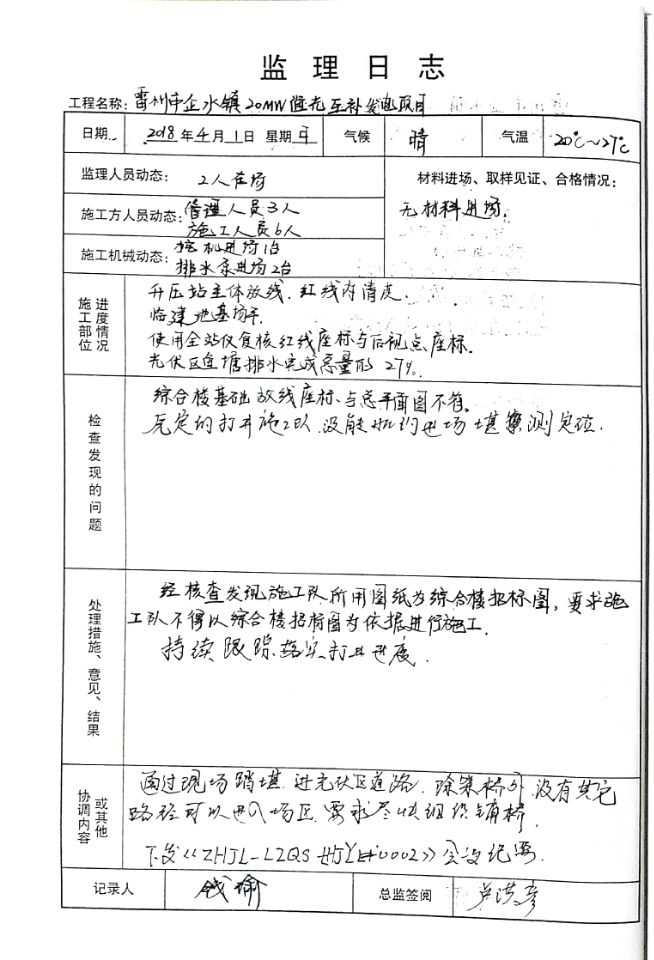 监理日志
工程名称: 雷州市企水镇20MW渔光互补发电项目
日期 2018年4月1日 星期日 气候 晴 气温 20℃~27℃
监理人员动态: 2人在场
材料进场、取样见证、合格情况:
无材料进场.
施工方人员动态: 管理人员3人
施工人员6人
施工机械动态: 挖机进场1台
排水泵进场2台
施工部位 进度情况
升压站主体放线.红线内清表.
临建地基场平.
使用全站仪复核红线座标与后视点座标.
光伏区鱼塘排水完成总量的27%.
检查发现的问题
综合楼基础放线座标与总平面图不符。
原定的打井施工队没能如约进场堪察测定位.
处理措施、意见、结果
经核查发现施工队所用图纸为综合楼招标图,要求施
工队不得以综合楼招标图为依据进行施工.
持续跟踪落实打井进度.
协调内容 或其他
通过现场踏堪.进光伏区道路.除策桥外没有其它
路径可以进入场区.要求尽快组织铺桥.
下发《ZHJL-LZQS 0002》会议纪要.
记录人 钱瑜 总监签阅 卢洪彦